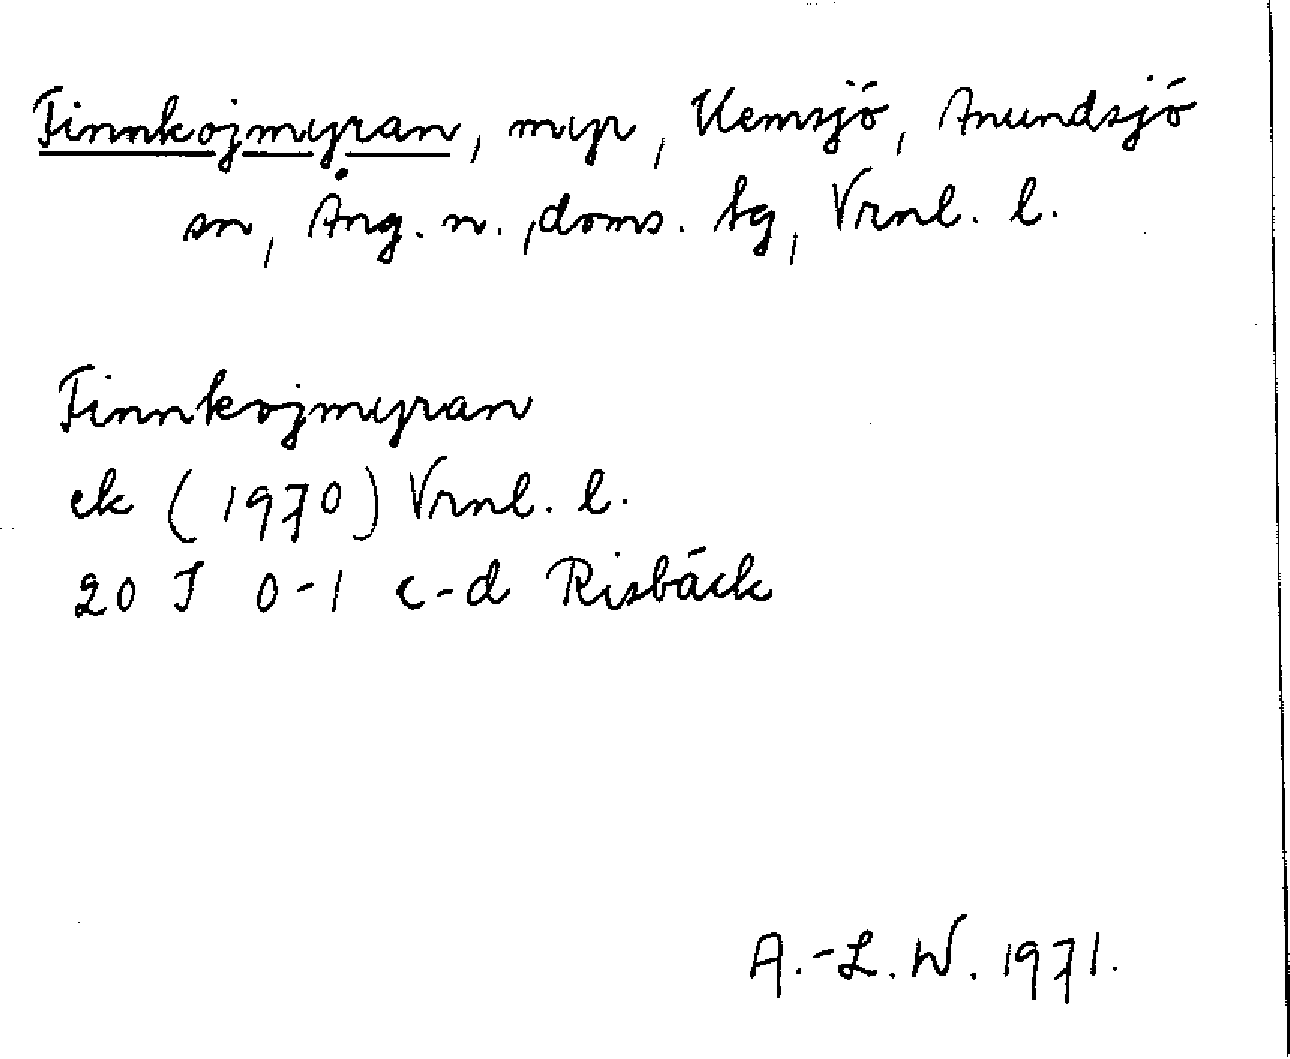 Finnkojmyran, myr, Kemsjö, Anundsjö
sn, Ång. n., doms. tg, Vrnl. l.
Finnkojmyran
ek (1970) Vrnl. l.
20 I 0-1 c-d Risbäck
A.-L. W. 1971.